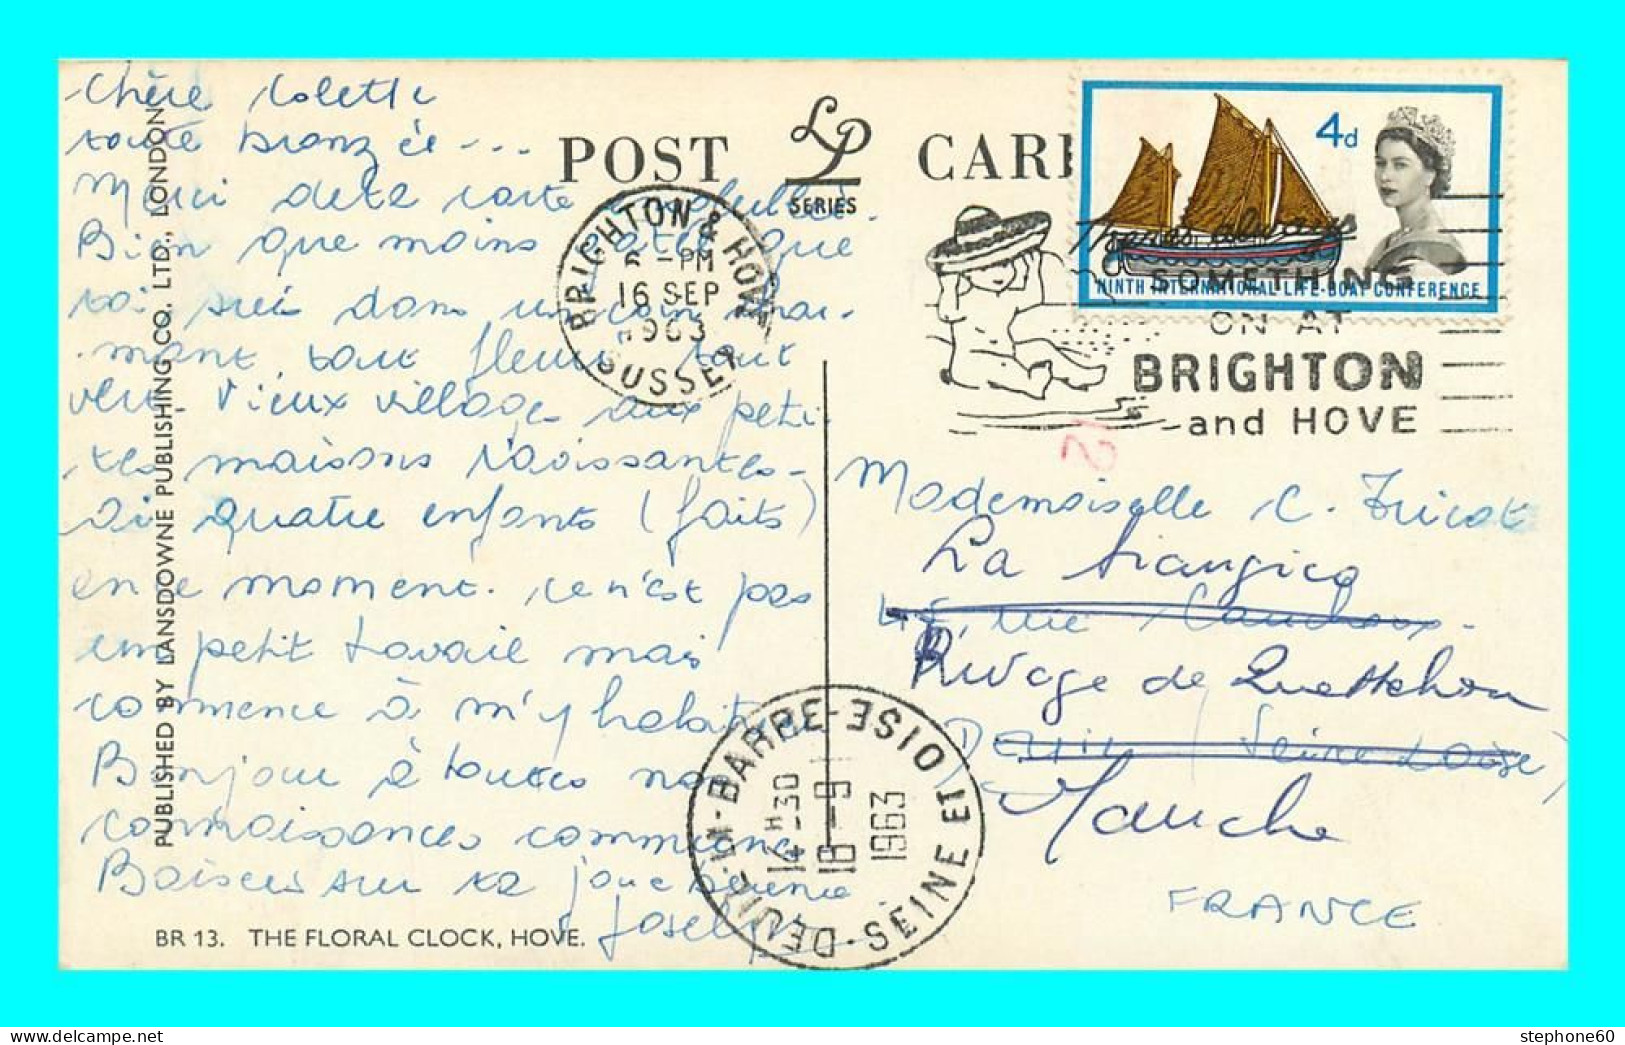 Chère Colette
toute bronzée...
Merci de ta carte
Bien que moins que
toi suis dans un coin char-
mant, tout fleuri, tout
vert Vieux village aux peti-
tes maisons ravissantes-
ai quatre enfants (faits)
en ce moment. Ce n'est pas
un petit travail mais
commence à m'y habituer
Bonjour à toutes nos
connaissances communes
Baisers sur ta joue
Joseph
PUBLISHED BY LANSDOWNE PUBLISHING CO., LTD., LONDON
BR 13. THE FLORAL CLOCK, HOVE.
POST CAR
LP
SERIES
BRIGHTON & HOVE
6 - PM
16 SEP
1963
SUSSEX
4d
NINTH INTERNATIONAL LIFE-BOAT CONFERENCE
There's always
SOMETHING
ON AT
BRIGHTON
and HOVE
12
Mademoiselle C. Tricot
La
rue Cauchoix
Rivage de Quettehou
Deuil (Seine et Oise)
Manche
FRANCE
DEUIL-LA-BARRE-SEINE ET OISE
14H-30
18-9
1963
stephone60